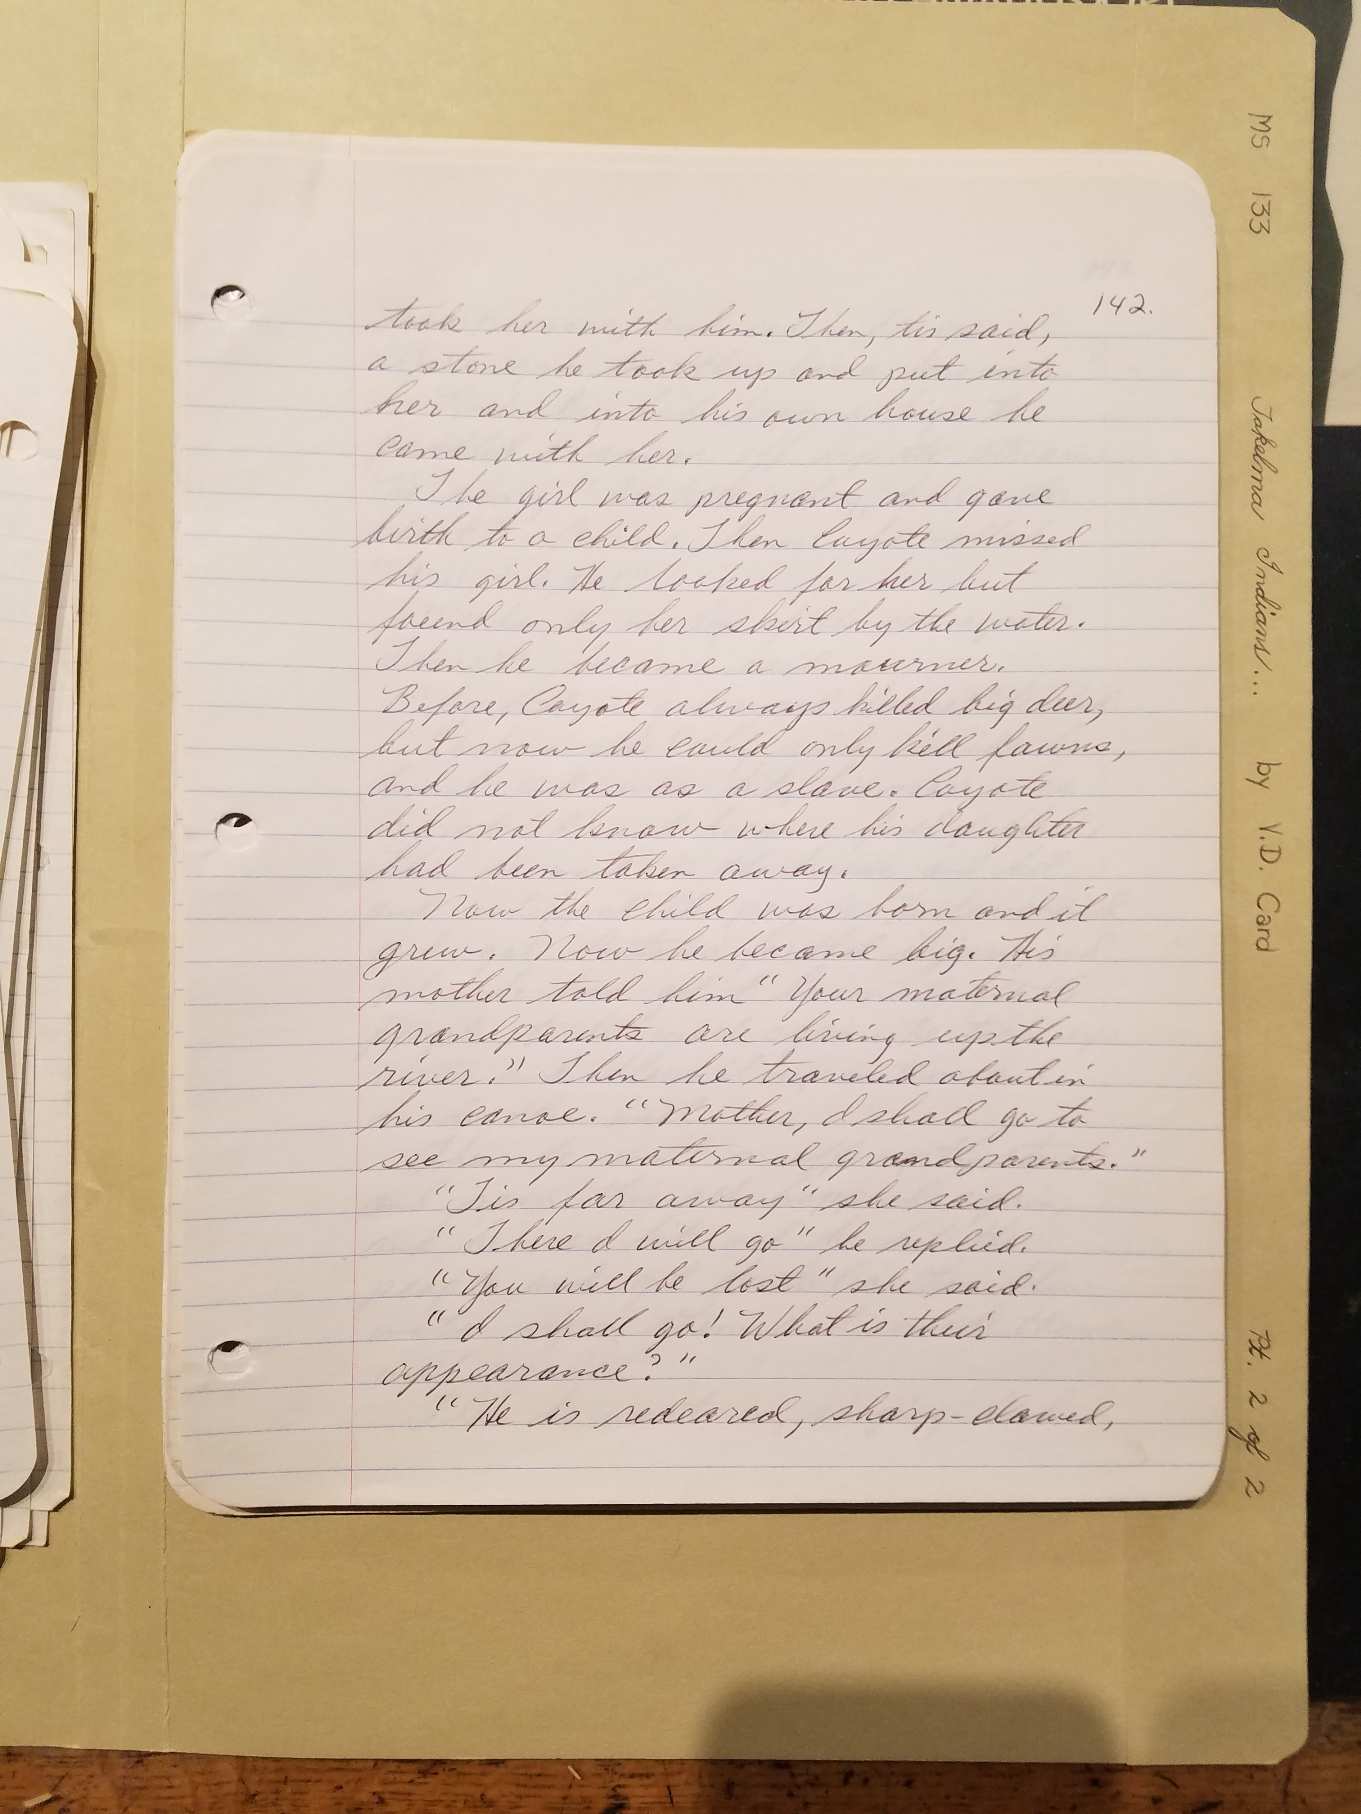 142.
took her with him. Then, tis said,
a stone he took up and put into
her and into his own house he
came with her.
The girl was pregnant and gave
birth to a child. Then Coyote missed
his girl. He looked for her but
found only her skirt by the water.
Then he became a mourner.
Before, Coyote always killed big deer,
but now he could only kill fawns,
and he was as a slave. Coyote
did not know where his daughter
had been taken away.
Now the child was born and it
grew. Now he became big. His
mother told him "Your maternal
grandparents are living up the
river." Then he traveled about in
his canoe. "Mother, I shall go to
see my maternal grandparents."
"Tis far away" she said.
"There I will go" he replied.
"You will be lost" she said.
"I shall go! What is their
appearance?"
"He is redeared, sharp-clawed,
MS 133 Takelma Indians... by V.D. Card Pt. 2 of 2